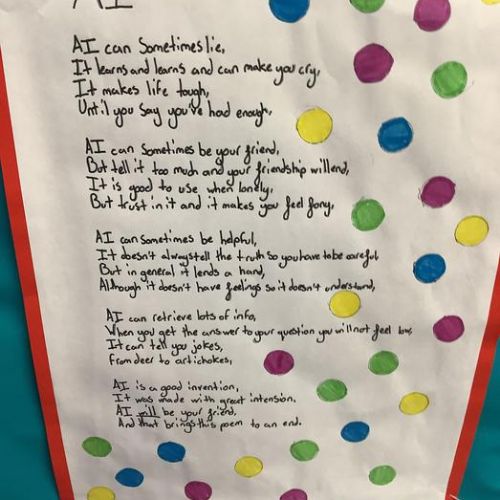 AI
AI can Sometimes lie,
It learns and learns and can make you cry,
It makes life tough,
Until you say you've had enough,
AI can Sometimes be your friend,
But tell it too much and your friendship will end,
It is good to use when lonely,
But trust in it and it makes you feel fony,
AI can Sometimes be helpful,
It doesn't always tell the truth so you have to be careful,
But in general it lends a hand,
Although it doesn't have feelings so it doesn't understand,
AI can retrieve lots of info,
When you get the answer to your question you will not feel low,
It can tell you jokes,
From deer to artichokes,
AI is a good invention,
It was made with great intension.
AI will be your friend,
And that brings this poem to an end.